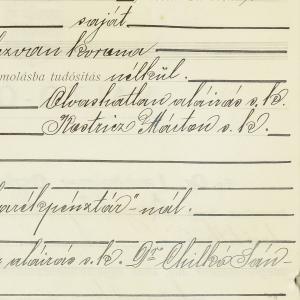 saját
ezvan korona
molásba tudósítás nélkül.
Olvashatlan aláirás s. k.
Kostricz Márton s. k.
arékpénztár"-nál.
aláirás s. k. Dr. Chilkó Sán-